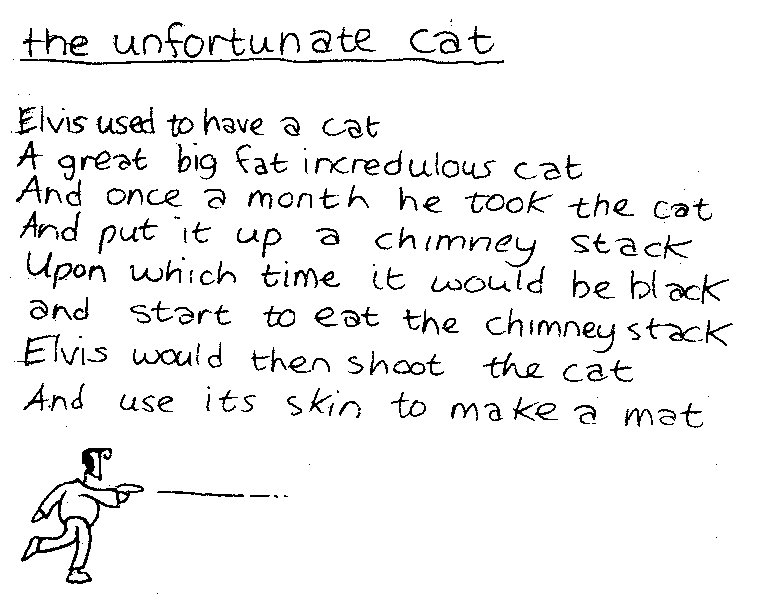 the unfortunate cat
Elvis used to have a cat
A great big fat incredulous cat
And once a month he took the cat
And put it up a chimney stack
Upon which time it would be black
and start to eat the chimney stack
Elvis would then shoot the cat
And use its skin to make a mat